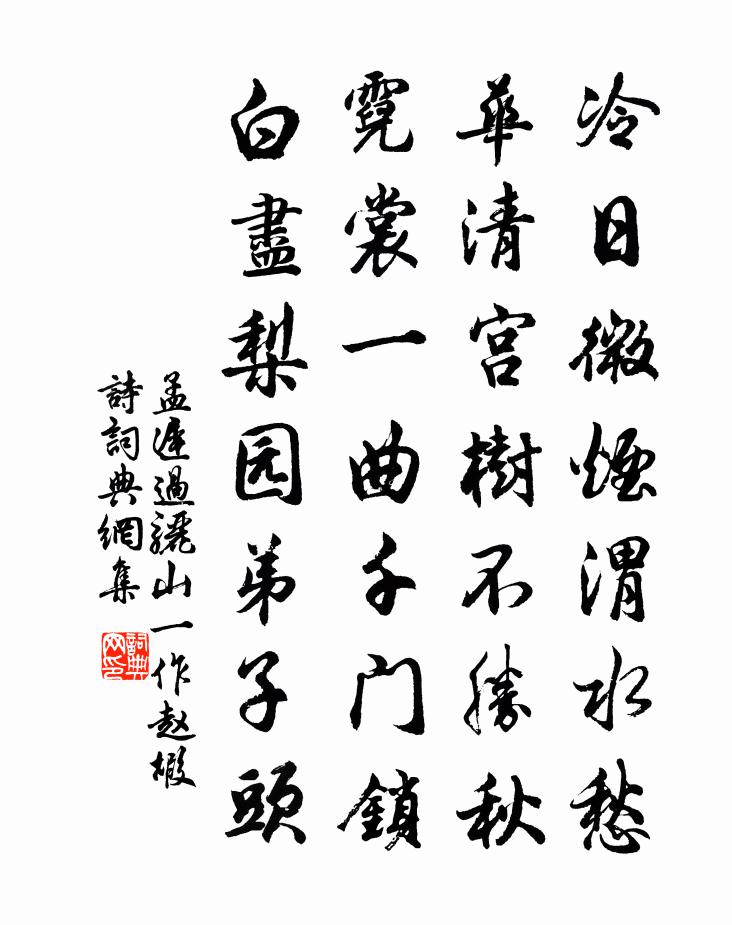 冷日微煙渭水愁
華清宮樹不勝秋
霓裳一曲千门鎖
白盡梨园弟子頭
孟遲過驪山一作赵嘏
詩詞典網集
詞典网印